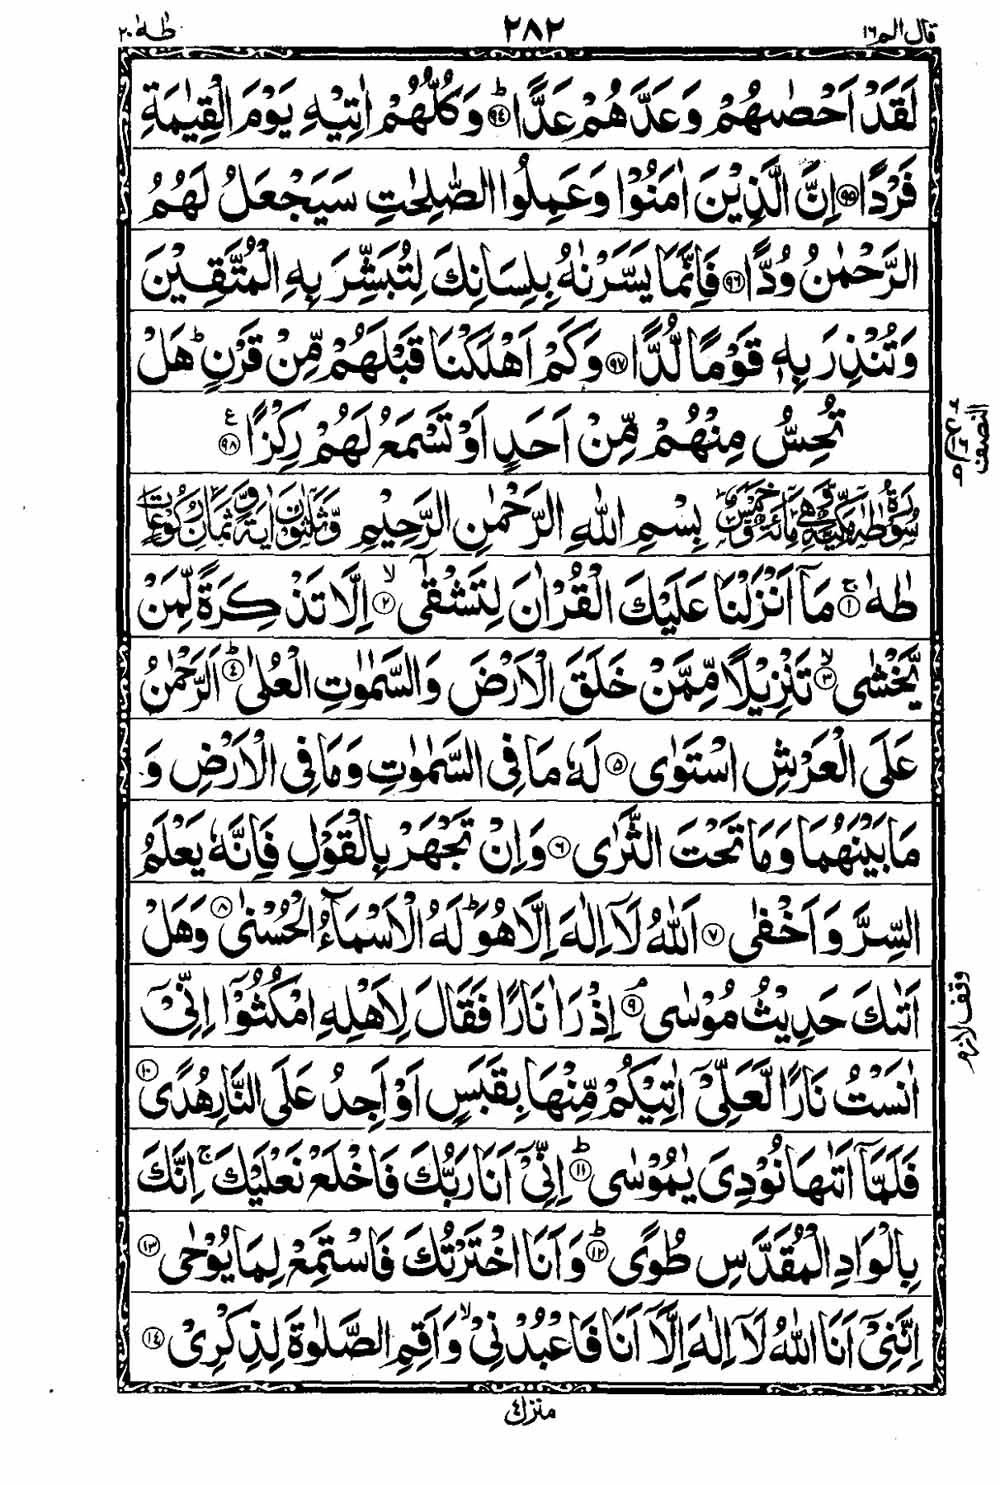 قال الم ١٦ ٢٨٢ طٰهٰ ٢٠
لَقَدْ اَحْصٰىهُمْ وَعَدَّهُمْ عَدًّا ؕ﴿٩٤﴾ وَكُلُّهُمْ اٰتِيْهِ يَوْمَ الْقِيٰمَةِ
فَرْدًا ﴿٩٥﴾ اِنَّ الَّذِيْنَ اٰمَنُوْا وَعَمِلُوا الصّٰلِحٰتِ سَيَجْعَلُ لَهُمُ
الرَّحْمٰنُ وُدًّا ﴿٩٦﴾ فَاِنَّمَا يَسَّرْنٰهُ بِلِسَانِكَ لِتُبَشِّرَ بِهِ الْمُتَّقِيْنَ
وَتُنْذِرَ بِهٖ قَوْمًا لُّدًّا ﴿٩٧﴾ وَكَمْ اَهْلَكْنَا قَبْلَهُمْ مِّنْ قَرْنٍ ؕ هَلْ
تُحِسُّ مِنْهُمْ مِّنْ اَحَدٍ اَوْ تَسْمَعُ لَهُمْ رِكْزًا ﴿٩٨﴾ ع
النصف
سُوْرَةُ طٰهٰ مَكِّيَّةٌ وَّهِيَ مِائَةٌ وَّخَمْسٌ بِسْمِ اللهِ الرَّحْمٰنِ الرَّحِيْمِ وَّثَلٰثُوْنَ اٰيَةً وَّثَمَانِ رُكُوْعَاتٍ
طٰهٰ ۚ﴿١﴾ مَاۤ اَنْزَلْنَا عَلَيْكَ الْقُرْاٰنَ لِتَشْقٰۤى ۙ﴿٢﴾ اِلَّا تَذْكِرَةً لِّمَنْ
يَّخْشٰى ۙ﴿٣﴾ تَنْزِيْلًا مِّمَّنْ خَلَقَ الْاَرْضَ وَالسَّمٰوٰتِ الْعُلٰى ؕ﴿٤﴾ اَلرَّحْمٰنُ
عَلَى الْعَرْشِ اسْتَوٰى ﴿٥﴾ لَهٗ مَا فِى السَّمٰوٰتِ وَمَا فِى الْاَرْضِ وَ
مَا بَيْنَهُمَا وَمَا تَحْتَ الثَّرٰى ﴿٦﴾ وَاِنْ تَجْهَرْ بِالْقَوْلِ فَاِنَّهٗ يَعْلَمُ
السِّرَّ وَاَخْفٰى ﴿٧﴾ اَللهُ لَاۤ اِلٰهَ اِلَّا هُوَ ؕ لَهُ الْاَسْمَآءُ الْحُسْنٰى ﴿٨﴾ وَهَلْ
اَتٰىكَ حَدِيْثُ مُوْسٰى ۘ﴿٩﴾ اِذْ رَاٰ نَارًا فَقَالَ لِاَهْلِهِ امْكُثُوْۤا اِنِّيْۤ
وقف لازم
اٰنَسْتُ نَارًا لَّعَلِّيْۤ اٰتِيْكُمْ مِّنْهَا بِقَبَسٍ اَوْ اَجِدُ عَلَى النَّارِ هُدًى ﴿١٠﴾
فَلَمَّاۤ اَتٰىهَا نُوْدِيَ يٰمُوْسٰى ؕ﴿١١﴾ اِنِّيْۤ اَنَا رَبُّكَ فَاخْلَعْ نَعْلَيْكَ ۚ اِنَّكَ
بِالْوَادِ الْمُقَدَّسِ طُوًى ؕ﴿١٢﴾ وَاَنَا اخْتَرْتُكَ فَاسْتَمِعْ لِمَا يُوْحٰى ﴿١٣﴾
اِنَّنِيْۤ اَنَا اللهُ لَاۤ اِلٰهَ اِلَّاۤ اَنَا فَاعْبُدْنِيْ ۙ وَاَقِمِ الصَّلٰوةَ لِذِكْرِيْ ﴿١٤﴾
منزل ٤